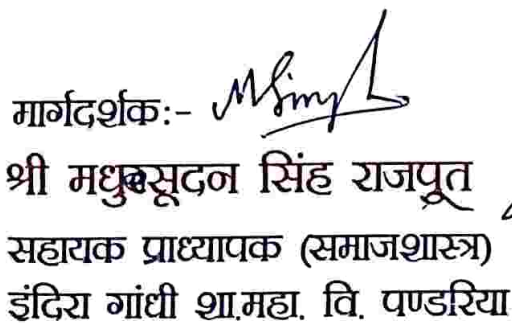 मार्गदर्शक:-
श्री मधुसूदन सिंह राजपूत
सहायक प्राध्यापक (समाजशास्त्र)
इंदिरा गांधी शा.महा. वि. पण्डरिया